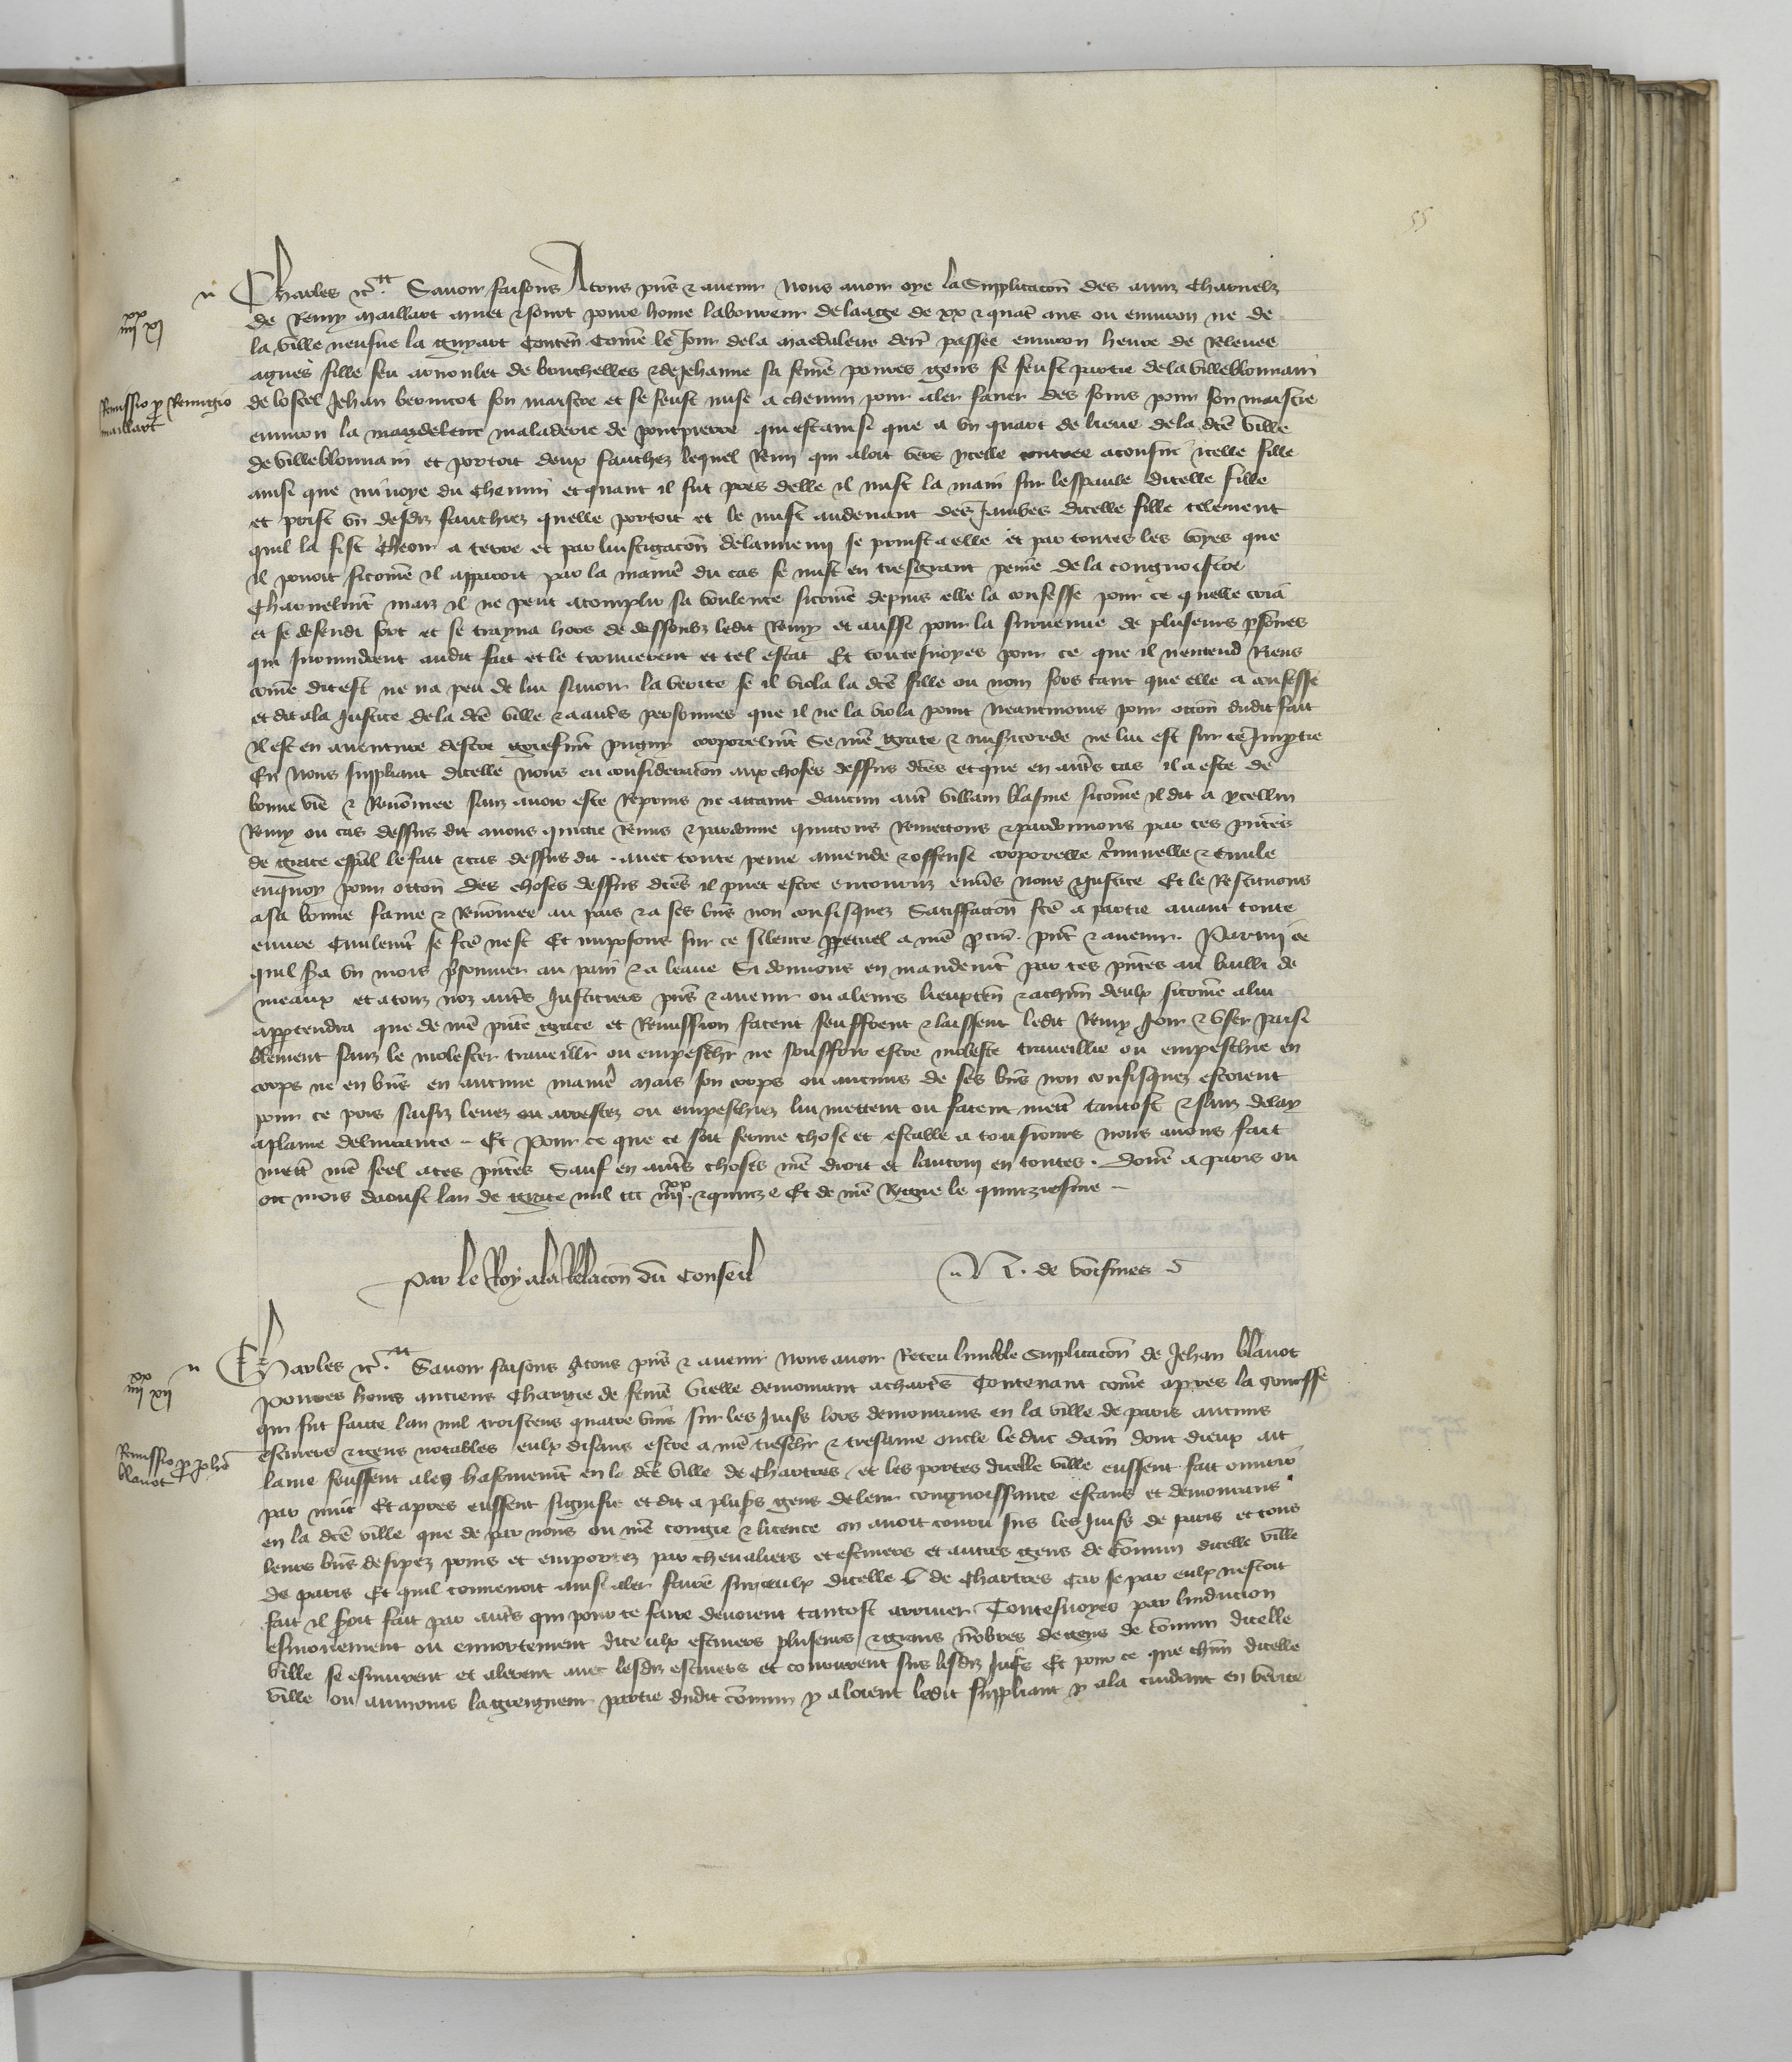 55
Charles etc. Savoir faisons A tous pns et avenir Nous avoir oye la Supplicacon des amis charnelz
IIII XX XI
de Remy Maillart povre home laboureur de laage de xx et quatre ans ou environ ne de
la ville neufve la guyart Conten Come le Jour de la Magdalene derr passee environ heure de Relevee
agnes fille feu arnoulet de bouchelles et de Jehanne sa feme povres gens se feust partie de la villeblouvain
Remissio pro Remigio maillart
de lostel Jehan bernicot son maistre et se feust mise a chemin pour aler faner des foins pour son maistre
environ la magdelene maladerie de pontpierre qui est ainsi que a un quart de lieue de la dce ville
de villeblouvain et portoit deux fauchez lequel Remy qui aloit vers ycelle contree aconsui icelle fille
ainsi que mi voye du chemin et quant il fut pres delle il mist la main sur lespaule dicelle fille
et prist un desdiz fauchiez quelle portoit et le mist audevant des Jambes dicelle fille telement
quil la fist cheoir a terre et par linstigacon de lannemy se prinst a elle et par toutes les voyes que
il povoit sicome il apparoit par la maniere du cas se mist en tresgrant peine de la congnoistre
charnelmt maiz il ne peut acomplir sa voulente sicome depuis elle la confesse pour ce quelle cria
et se defendi fort et se trayna hors de dessoubz ledit Remy et aussi pour la survenue de pluseurs psones
qui survindrent audit fait et le trouverent et tel estat Et toutesvoyes pour ce que il nentend Riens
come dit est ne na peu de lui savoir la verite se il viola la dce fille ou non fors tant que elle a confesse
et dit a la Justice de la dce ville et a autres personnes que il ne la viola point Neantmoins pour occon dudit fait
il est en aventure destre griefmt pugny corporelmt Se nre grace et misericorde ne lui est sur ce Impartie
En nous suppliant dicelle nous eu consideracon aux choses dessus dces et que en autres cas il a este de
bonne vie et Renomee sanz avoir este Repris ne attaint daucun autre villain blasme sicome il dit a ycellui
Remy ou cas dessus dit avons quictie Remis et pardonne quictons Remettons et pardonnons par ces pntes
de grace espal le fait et cas dessus dit avec toute peine amende et offense corporelle criminelle et Civile
enquoy pour occon des choses dessus dces il puet estre encouruz envers nous et Justice Et le Restituons
a sa bonne fame et Renomee au pais et a ses biens non confisquez Satisfaccon fce a partie avant toute
euvre Civilemt se fce nest Et imposons sur ce silence ppetuel a nre procur. pnt et avenir. Parmi ce
quil sera un mois prisonnier au pain et a leaue Si donnons en mandemt par ces pntes au bailli de
meaulx et a touz noz autres Justiciers pns et avenir ou a leurs lieuxten et a chun deulx sicome a lui
appartendra que de nre pnte grace et Remission facent seuffrent et laissent ledit Remy Joir et user paisi
blement sanz le molester traveillr ou empeschr ne souffrir estre moleste traveillie ou empeschie en
corps ne en biens en aucune maniere Mais son corps ou aucuns de ses biens non confisquez estoient
pour ce pris saisiz levez ou arrestez ou empeschiez lui mettent ou facent mettre tantost et sanz delay
a plaine delivrance Et Pour ce que ce soit ferme chose et estable a tousiours Nous avons fait
mettre nre seel a ces pntes Sauf en autres choses nre droit et lautrui en toutes. Done a paris ou
ou mois daoust lan de grace mil ccc iiii xx et quinze Et de nre Regne le quinziesme
Par le Roy a la Relacon du Conseil N. de voisines
Charles etc. Savoir faisons A tous pns et avenir Nous avoir Receu lumble Supplicacon de Jehan blavot
IIII XX XII
povres homs anciens chargie de feme vielle demourant a chartres Contenant come apres la commosse
qui fut faicte lan mil troiscens quatre vins sur les Juifs lors demourans en la ville de paris aucuns
Remissio pro Johe blavot
escuiers et gens notables eulx disans estre a nre treschr et tresame oncle le duc danjou dont dieux ait
lame feussent alez hastivemt en la dce ville de Chartres et les portes dicelle ville eussent fait ouvrir
par nuit Et apres eussent signifie et dit a plusrs gens de leur congnoissance estans et demourans
en la dce ville que de par nous ou nre congie et licence on avoit couru sus les Juifs de paris et tous
leurs biens desipez prins et emportez par chevaliers et escuiers et autres gens de comun dicelle ville
de paris Et quil convenoit ainsi aler faire sur ceulx dicelle v de Chartres Car se par eulx nestoit
fait il seroit fait par autres qui pour ce faire devoient tantost arriver Toutesvoyes par linducion
esmouvement ou ennortement diceulx escuiers pluseurs et grans nombres de gens de comun dicelle
ville se esmurent et alerent avec lesdiz escuiers et coururent sus lesdiz Juifs Et pour ce que chun dicelle
ville ou aumoins la greigneur partie dudit comun y aloient ledit suppliant y ala cuidant en verite